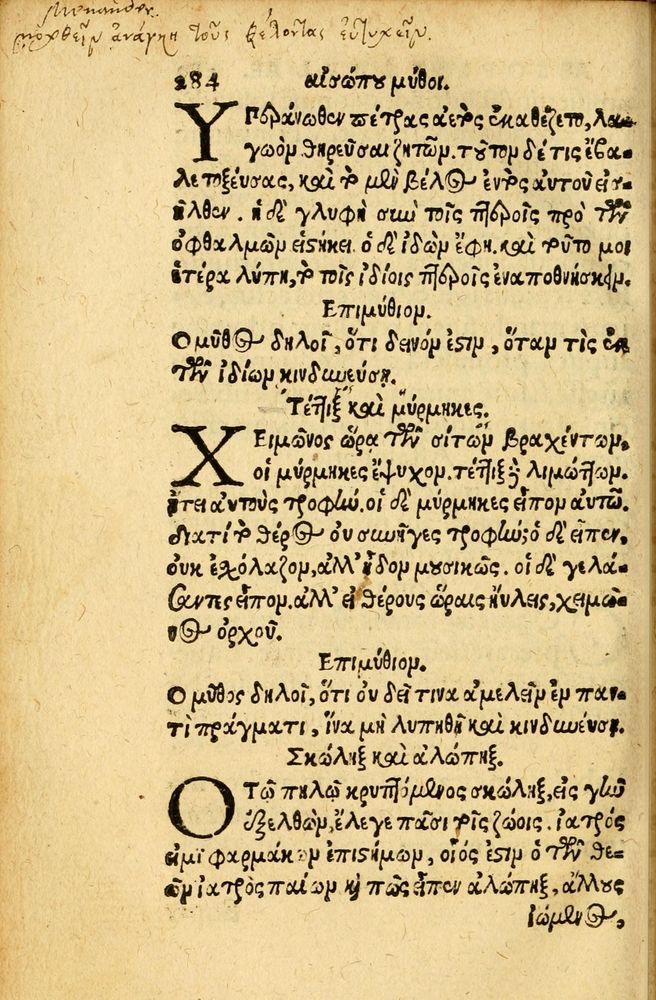 Menander.
μοχθεῖν ἀνάγκη τοὺς θέλοντας εὐτυχεῖν.
284 αἰσώπου μύθοι.
Υπεράνωθεν πέτρας ἀετὸς ἐκαθέζετο, λα-
γωὸν θηρεῦσαι ζητῶν. τοῦτον δέ τις ἔβα-
λε τοξεύσας, καὶ τὸ μὲν βέλος ἐντὸς αὐτοῦ εἰσ-
ῆλθεν. ἡ δὲ γλυφὴ σὺν τοῖς πτεροῖς πρὸ τῶν
ὀφθαλμῶν εἱστήκει. ὁ δὲ ἰδὼν ἔφη. καὶ τοῦτό μοι
ἑτέρα λύπη, τὸ τοῖς ἰδίοις πτεροῖς ἐναποθνήσκειν.
Επιμύθιον.
Ο μῦθος δηλοῖ, ὅτι δεινόν ἐστιν, ὅταν τὶς ἐκ
τῶν ἰδίων κινδυνεύσῃ.
Τέττιξ καὶ μύρμηκες.
ΧΕιμῶνος ὥρᾳ τῶν σίτων βραχέντων,
οἱ μύρμηκες ἔψυχον. τέττιξ δὲ λιμώττων.
ᾔτει αὐτοὺς τροφήν. οἱ δὲ μύρμηκες εἶπον αὐτῷ.
διατί τὸ θέρος οὐ συνῆγες τροφήν; ὁ δὲ εἶπεν,
οὐκ ἐχόλαζον, ἀλλ' ᾖδον μουσικῶς. οἱ δὲ γελά-
σαντες εἶπον. ἀλλ' εἰ θέρους ὥραις ηὔλεις, χειμῶ-
νος ὀρχοῦ.
Επιμύθιον.
Ο μῦθος δηλοῖ, ὅτι οὐ δεῖ τινα ἀμελεῖν ἐν παν-
τὶ πράγματι, ἵνα μὴ λυπηθῇ καὶ κινδυνεύσῃ.
Σκώληξ καὶ ἀλώπηξ.
ΟΤῷ πηλῷ κρυπτόμενος σκώληξ, εἰς γῆν
ἐξελθὼν, ἔλεγε πᾶσι τοῖς ζώοις. ἰατρός
εἰμι φαρμάκων ἐπιστήμων, οἷός ἐστιν ὁ τῶν θε-
ῶν ἰατρὸς παίων. καὶ πῶς εἶπεν ἀλώπηξ, ἄλλους
ἰώμενος,